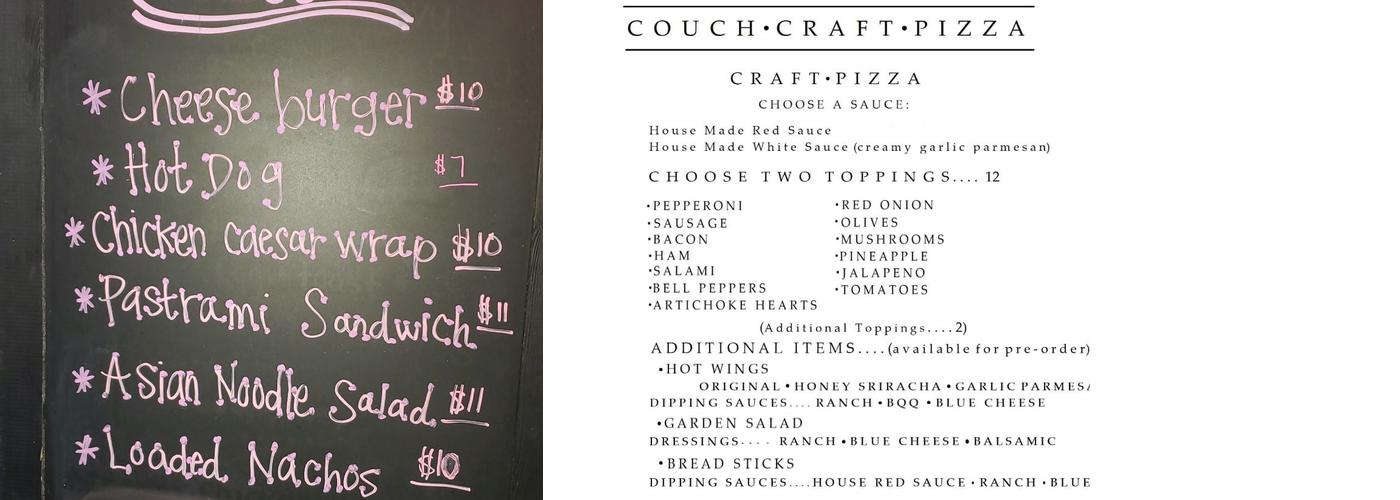 * Cheese burger $10
* Hot Dog $7
* Chicken caesar wrap $10
* Pastrami Sandwich $11
* Asian Noodle Salad $11
* Loaded Nachos $10
COUCH•CRAFT•PIZZA
CRAFT•PIZZA
CHOOSE A SAUCE:
House Made Red Sauce
House Made White Sauce (creamy garlic parmesan)
CHOOSE TWO TOPPINGS.... 12
•PEPPERONI
•SAUSAGE
•BACON
•HAM
•SALAMI
•BELL PEPPERS
•ARTICHOKE HEARTS
•RED ONION
•OLIVES
•MUSHROOMS
•PINEAPPLE
•JALAPENO
•TOMATOES
(Additional Toppings....2)
ADDITIONAL ITEMS....(available for pre-order)
•HOT WINGS
ORIGINAL •HONEY SRIRACHA •GARLIC PARMES
DIPPING SAUCES.... RANCH •BQQ •BLUE CHEESE
•GARDEN SALAD
DRESSINGS.... RANCH •BLUE CHEESE •BALSAMIC
•BREAD STICKS
DIPPING SAUCES....HOUSE RED SAUCE •RANCH •BLUE